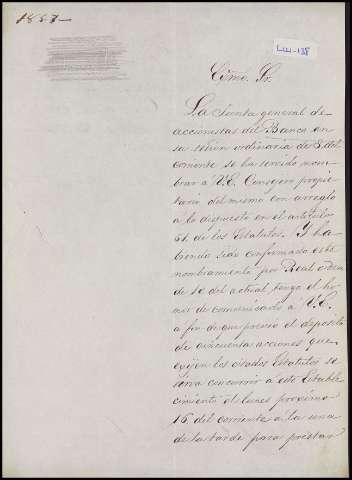 1857
Lui-138
Excmo. Sr.
La Junta general de
accionistas del Banco en
su sesión ordinaria de 5 del
corriente se ha servido nom-
brar a V.E. Consejero propie-
tario del mismo con arreglo
a lo dispuesto en el artículo
51 de los Estatutos. Y ha-
biendo sido confirmado este
nombramiento por Real orden
de 10 del actual, tengo el ho-
nor de comunicarlo a V.E.
a fin de que previo el depósito
de cincuenta acciones que
exijen los citados Estatutos se
sirva concurrir a este Estable-
cimiento el lunes próximo
16 del corriente a la una
de la tarde para prestar